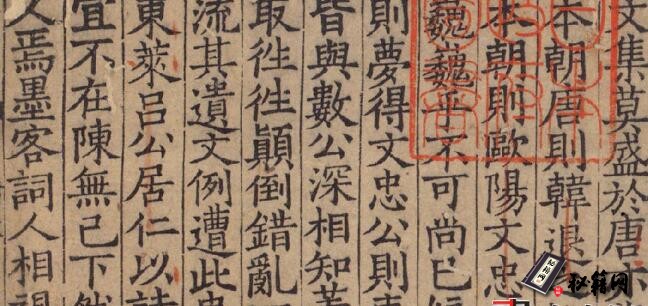 文集莫盛於唐亦
本朝唐則韓退
本朝則歐陽文忠
巍巍乎不可尚已
則夢得文忠公則
皆與數公深相知
取徃徃顛倒錯亂
流其遺文例遭此
東萊呂公居仁以詩
宜不在陳無己下然
焉墨客詞人相
秘籍网